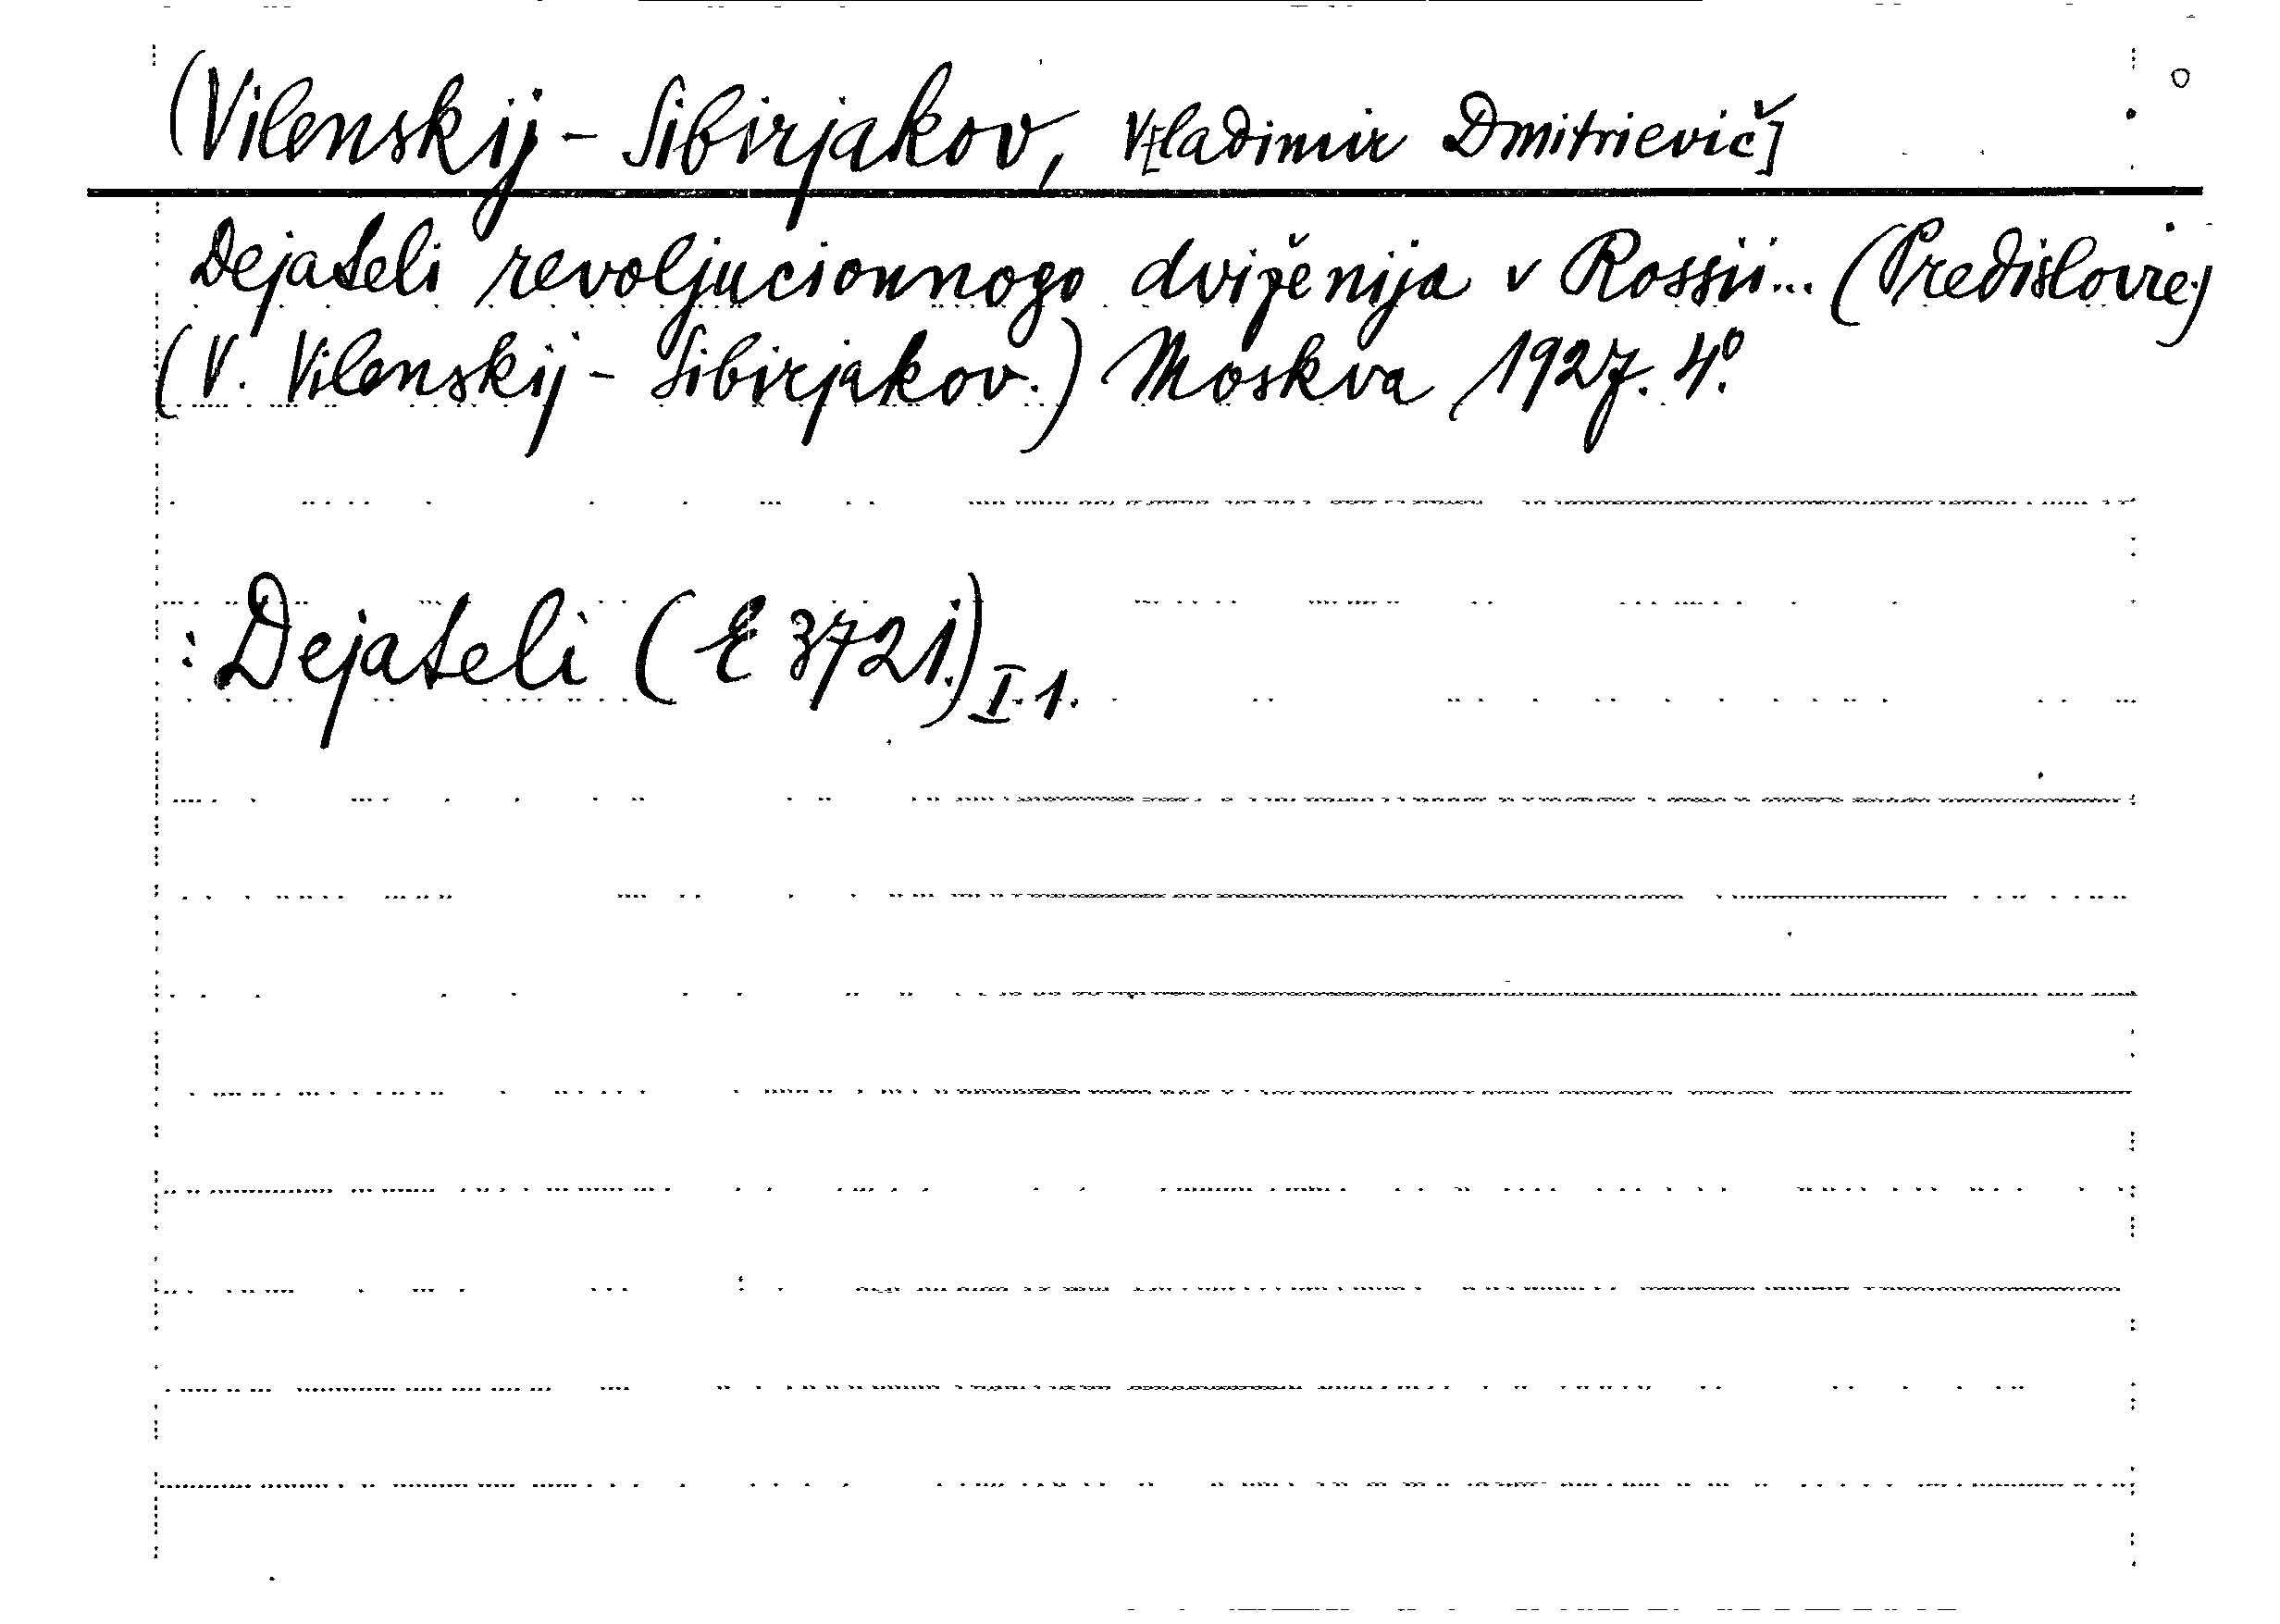 (Vilenskij - Sibirjakov, V[ladimir Dmitrievič]
Dejateli revoljucionnogo dviženija v Rossii... (Predislovie:)
(V. Vilenskij - Sibirjakov.) Moskva, 1927. 4°.
: Dejateli (E 3721.) I. 1.